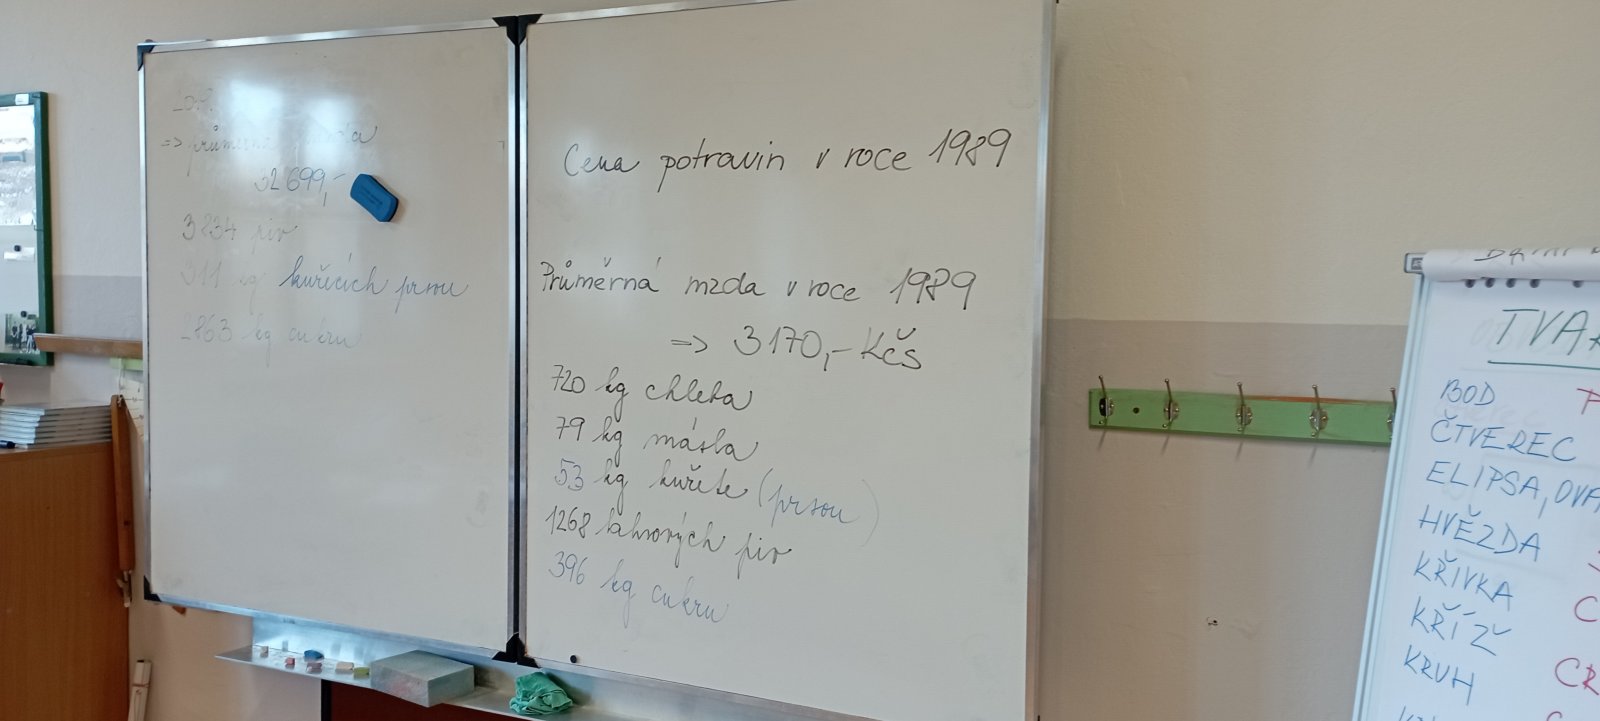 2019
=> průměrná mzda
32 699,-
3834 piv
311 kg kuřecích prsou
2863 kg cukru
Cena potravin v roce 1989
Průměrná mzda v roce 1989
=> 3170,- Kčs
720 kg chleba
79 kg másla
53 kg kuřete (prsou)
1268 lahvových piv
396 kg cukru
TVA
BOD
ČTVEREC
ELIPSA, OVÁ
HVĚZDA
KŘIVKA
KŘÍŽ
KRUH